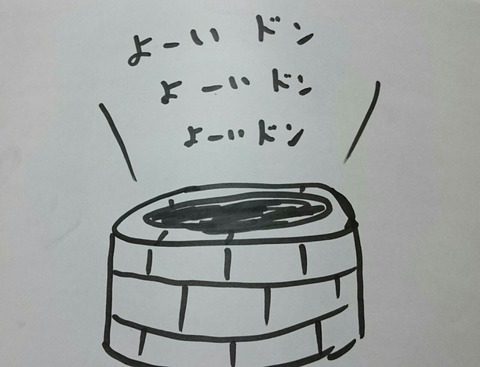 よーい ドン
よーい ドン
よーいドン